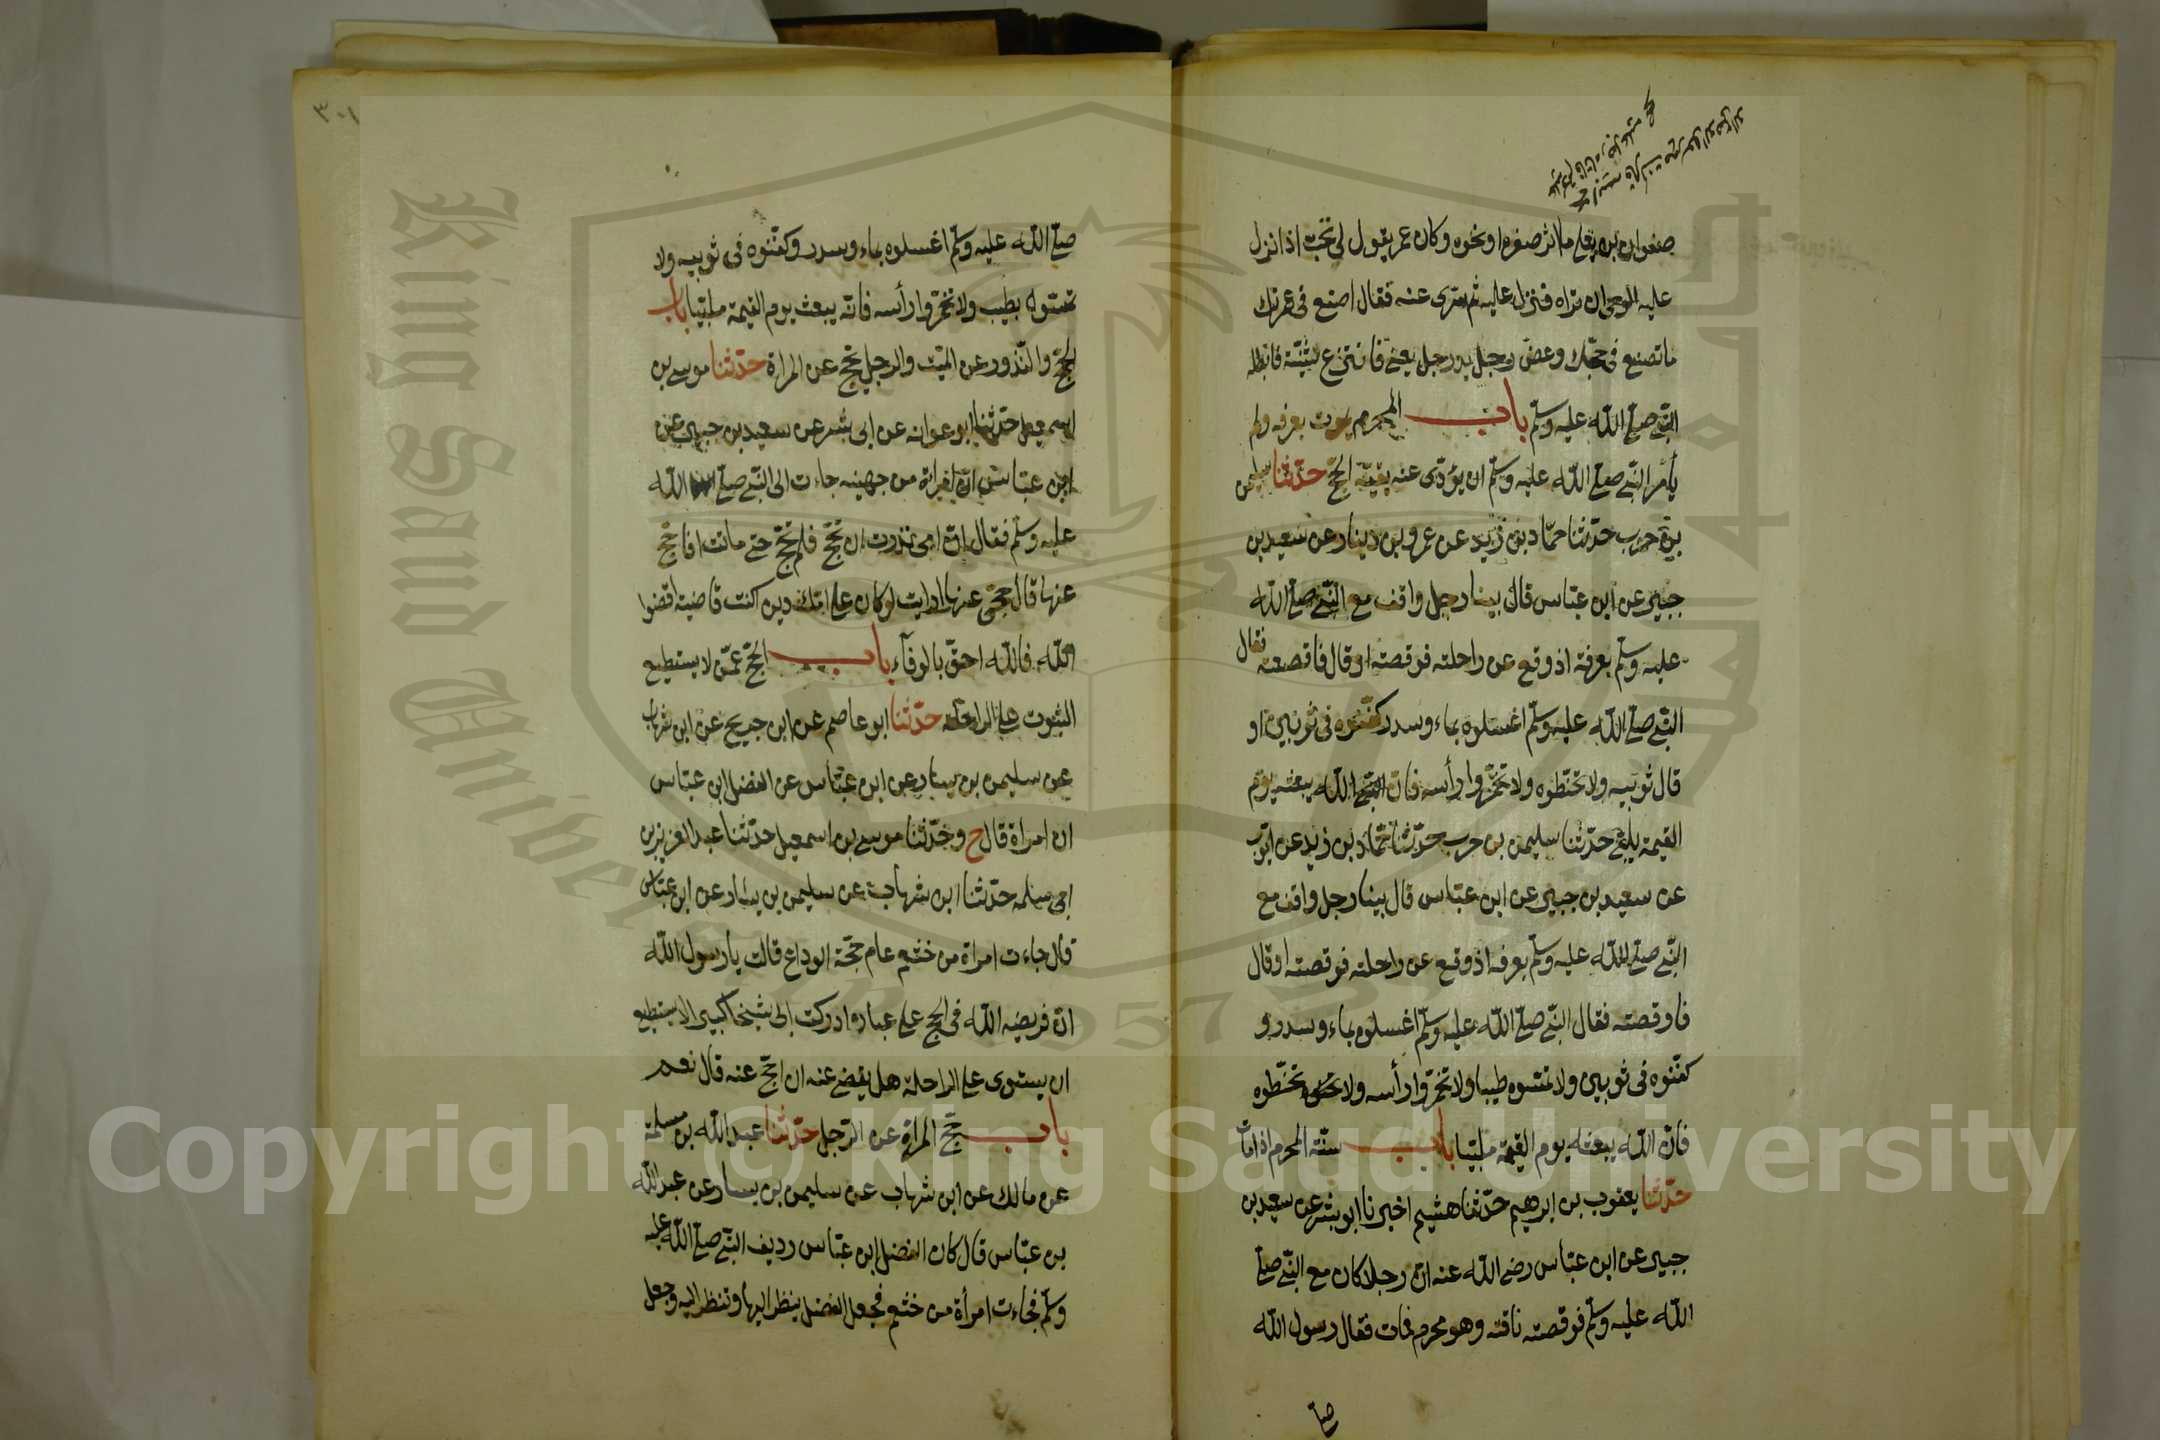 صفوان بن يعلى ما اثر صفرة او نحوه وكان عمر يقول لي تحب اذا نزل
عليه الوحي ان تراه فنزل عليه ثم سرى عنه فقال اصنع في عمرتك
ما تصنع في حجك وعض رجل يد رجل يعنى فانتزع ثنيته فابطله
النبي صلى الله عليه وسلم باب المحرم يموت بعرفة ولم
يأمر النبي صلى الله عليه وسلم ان يؤدى عنه بقية الحج حدثنا سليمن
بن حرب حدثنا حماد بن زيد عن عمرو بن دينار عن سعيد بن
جبير عن ابن عباس قال بينا رجل واقف مع النبي صلى الله
عليه وسلم بعرفة اذ وقع عن راحلته فوقصته او قال فاقصعته فقال
النبي صلى الله عليه وسلم اغسلوه بماء وسدر كفنوه في ثوبين او
قال ثوبيه ولا تحنطوه ولا تخمروا رأسه فان الله يبعثه يوم
القيمة يلبي حدثنا سليمن بن حرب حدثنا حماد بن زيد عن ايوب
عن سعيد بن جبير عن ابن عباس قال بينا رجل واقف مع
النبي صلى الله عليه وسلم بعرفة اذ وقع عن راحلته فوقصته او قال
فاوقصته فقال النبي صلى الله عليه وسلم اغسلوه بماء وسدر و
كفنوه في ثوبين ولا تمسوه طيبا ولا تخمروا رأسه ولا تحنطوه
فان الله يبعثه يوم القيمة ملبيا باب سنة المحرم اذا مات
حدثنا يعقوب بن ابرهيم حدثنا هشيم اخبرنا ابو بشر عن سعيد بن
جبير عن ابن عباس رضى الله عنه ان رجلا كان مع النبي صلى
الله عليه وسلم فوقصته ناقته وهو محرم فمات فقال رسول الله
صلى
٣٠١
صلى الله عليه وسلم اغسلوه بماء وسدر وكفنوه في ثوبيه ولا
تمسوه بطيب ولا تخمروا رأسه فانه يبعث يوم القيمة ملبيا باب
الحج والنذور عن الميت والرجل يحج عن المراة حدثنا موسى بن
اسمعيل حدثنا ابو عوانه عن ابى بشر عن سعيد بن جبير عن
ابن عباس ان امراة من جهينه جاءت الى النبي صلى الله
عليه وسلم فقال ان امى نذرت ان تحج فلم تحج حتى ماتت افاحج
عنها قال حجى عنها ارايت لو كان على امك دين اكنت قاضيته اقضوا
الله فالله احق بالوفآء باب الحج عمن لا يستطيع
الثبوت على الراحلة حدثنا ابو عاصم عن ابن جريج عن ابن شهاب
عن سليمن بن يسار عن ابن عباس عن الفضل ابن عباس
ان امراة قال ح وحدثنا موسى بن اسمعيل حدثنا عبد العزيز بن
ابي سلمه حدثنا ابن شهاب عن سليمن بن يسار عن ابن عباس
قال جاءت امراة من خثعم عام حجة الوداع قالت يا رسول الله
ان فريضه الله في الحج على عباده ادركت ابي شيخا كبيرا لا يستطيع
ان يستوى على الراحلة هل يقضي عنه ان احج عنه قال نعم
باب حج المراة عن الرجل حدثنا عبد الله بن مسلمة
عن مالك عن ابن شهاب عن سليمن بن يسار عن عبد الله
بن عباس قال كان الفضل ابن عباس رديف النبي صلى الله عليه
وسلم فجاءت امرأة من خثعم فجعل الفضل ينظر اليها وتنظر اليه وجعل
King Saud Univer
1957
Copyright © King Saud University